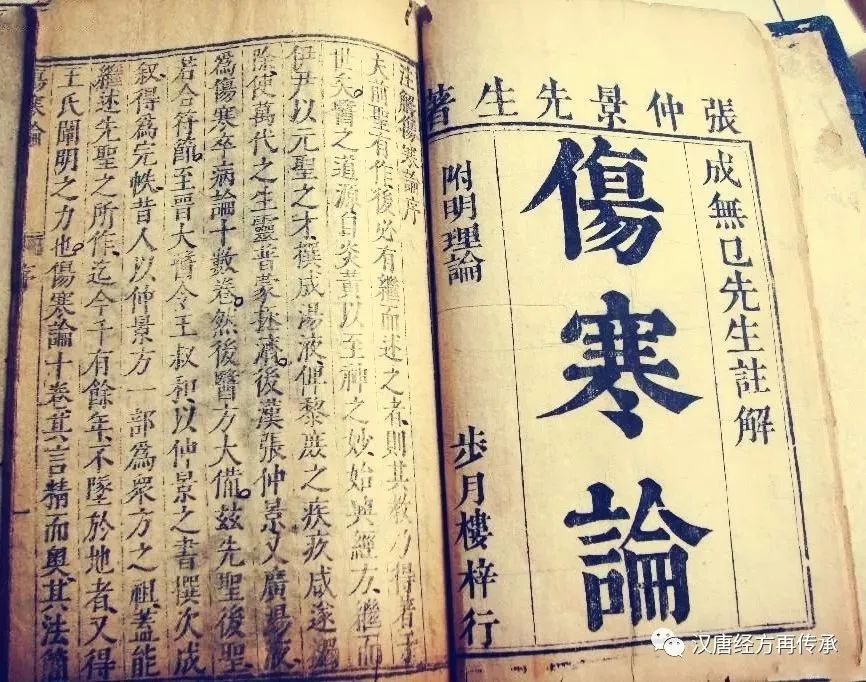 張仲景先生著
成無已先生註解
傷寒論
附明理論
步月樓梓行
註解傷寒論序
夫前聖有作後必有繼而述之者則其教乃得著于
世矣醫之道源自炎黃以至神之妙始興經方繼而
伊尹以元聖之才撰成湯液俾黎庶之疾疢咸遂蠲
除使萬代之生靈普蒙拯濟後漢張仲景又廣湯液
為傷寒卒病論十數卷然後醫方大備茲先聖後聖
若合符節至晉大醫令王叔和以仲景之書撰次成
叙得為完帙昔人以仲景方一部為眾方之祖蓋能
繼述先聖之所作迄今千有餘年不墜於地者又得
王氏闡明之力也傷寒論十卷其言精而奧其法簡
傷寒論
序
汉唐经方再传承